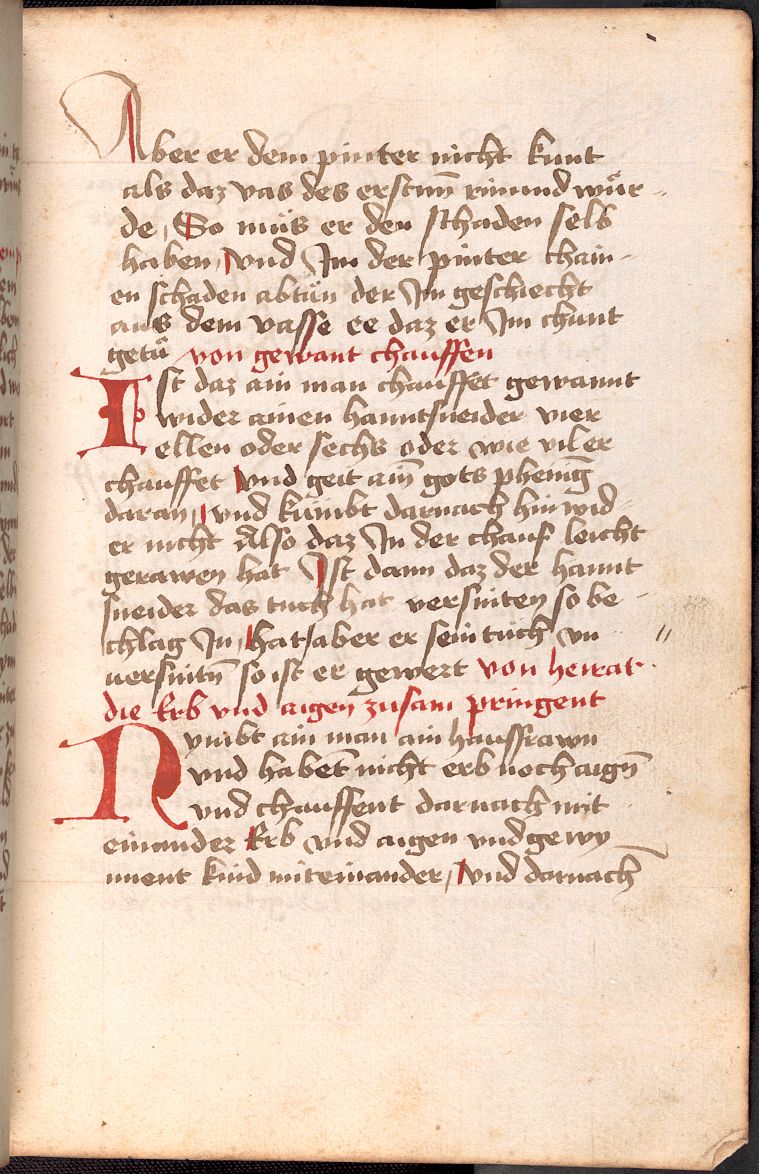 Aber er dem pinter nicht kunt
als daz vas des ersten rinnund wür-
de, So müs er den schaden selb
haben, vnd Im der pinter chain-
en schaden abtün der Im geschiecht
aus dem vasse ee daz er Im chunt
getü von gewant chauffen
Ist daz ain man chauffet gewannt
wider ainen hanntsneider vier
ellen oder sechs oder wie vil er
chauffet vnd geit ain̄ gots phenīg
daran, vnd kumbt darnach hin wid-
er nicht Also daz In der chauf leicht
gerawen hat Ist dann daz der hannt
sneider das tuch hat versniten so be-
chlag In, hat aber er sein tuch vn
uersnitn̄ so ist er gewert von heirat
die Erb vnd aigen zusam pringent
Nymbt ain man ain hausfrawn
vnd habent̄ nicht erb noch aign̄
vnd chauffent darnach mit
einander Erb vnd aigen vnd gewy
nnent kind miteinander, vnd darnach